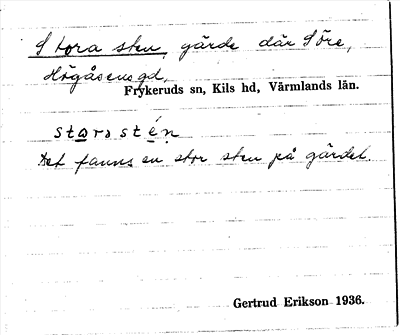 Stora sten, gärde där Söre,
Högåsens gd,
Frykeruds sn, Kils hd, Värmlands län.
stⱥrə stén
Det fanns en stor sten på gärdet.
Gertrud Erikson 1936.